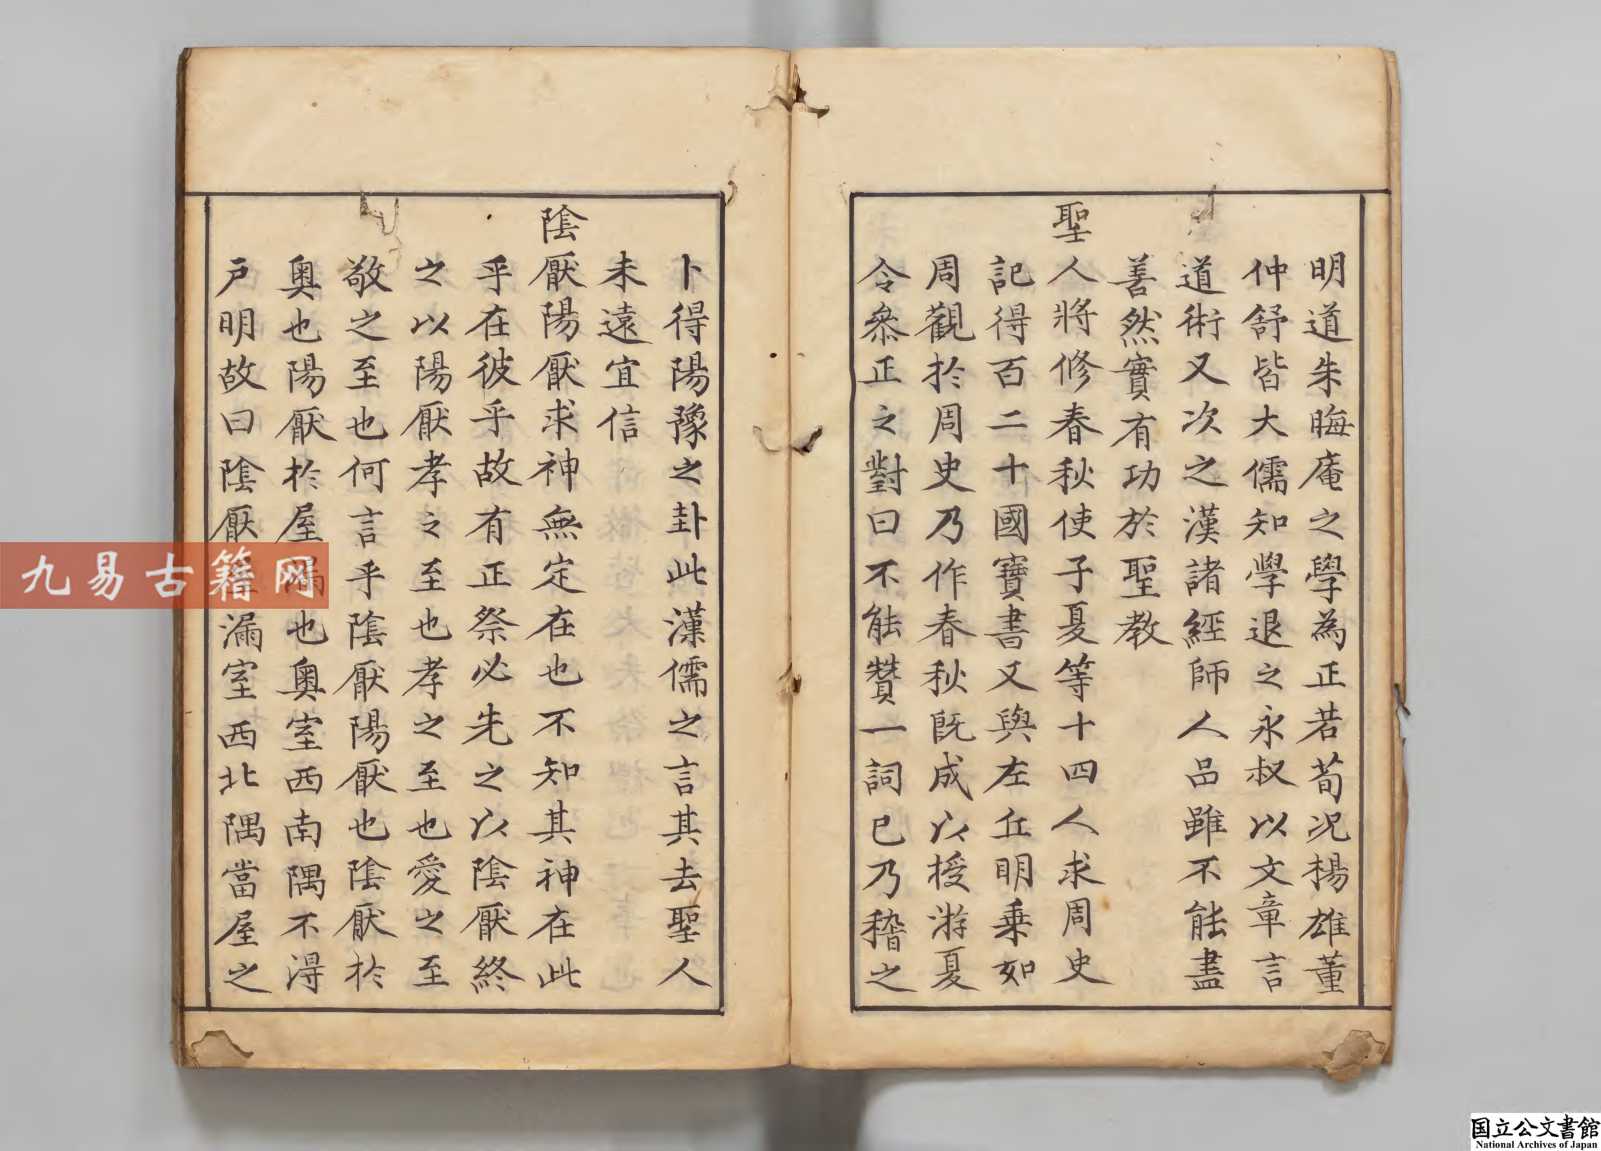 明道朱晦庵之學為正若荀况楊雄董
仲舒皆大儒知學退之永叔以文章言
道術又次之漢諸經師人品雖不能盡
善然實有功於聖教
聖人將修春秋使子夏等十四人求周史
記得百二十國寶書又與左丘明乗如
周觀於周史乃作春秋既成以授游夏
令叅正之對曰不能贊一詞已乃稽之
卜得陽豫之卦此漢儒之言其去聖人
未遠宜信
隂厭陽厭求神無定在也不知其神在此
乎在彼乎故有正祭必先之以隂厭終
之以陽厭孝之至也孝之至也愛之至
敬之至也何言乎隂厭陽厭也隂厭於
奥也陽厭於屋漏也奥室西南隅不得
戸明故曰隂厭漏室西北隅當屋之
九易古籍网
国立公文書館
National Archives of Japan